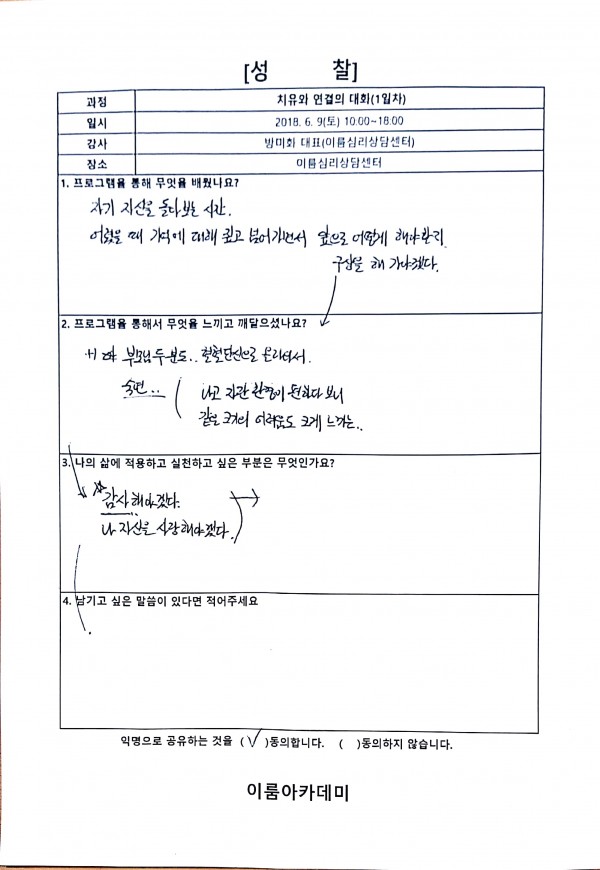 [성 찰]
과정 치유와 연결의 대화(1일차)
일시 2018. 6. 9(토) 10:00~18:00
강사 방미화 대표(이룸심리상담센터)
장소 이룸심리상담센터
1. 프로그램을 통해 무엇을 배웠나요?
자기 자신을 돌아보는 시간.
어렸을 때 기억에 대해 짚고 넘어가면서 앞으로 어떻게 해야할지
구상을 해 가야겠다.
2. 프로그램을 통해서 무엇을 느끼고 깨달으셨나요?
부모님 두분도.. 혈혈단신으로 올라오셔서.
숙연.. 나고 자란 환경이 편하다 보니
같은 크기의 어려움도 크게 느끼는..
3. 나의 삶에 적용하고 실천하고 싶은 부분은 무엇인가요?
감사해야겠다.
나 자신을 사랑해야겠다.
4. 남기고 싶은 말씀이 있다면 적어주세요
익명으로 공유하는 것을 (√)동의합니다. ( )동의하지 않습니다.
이룸아카데미